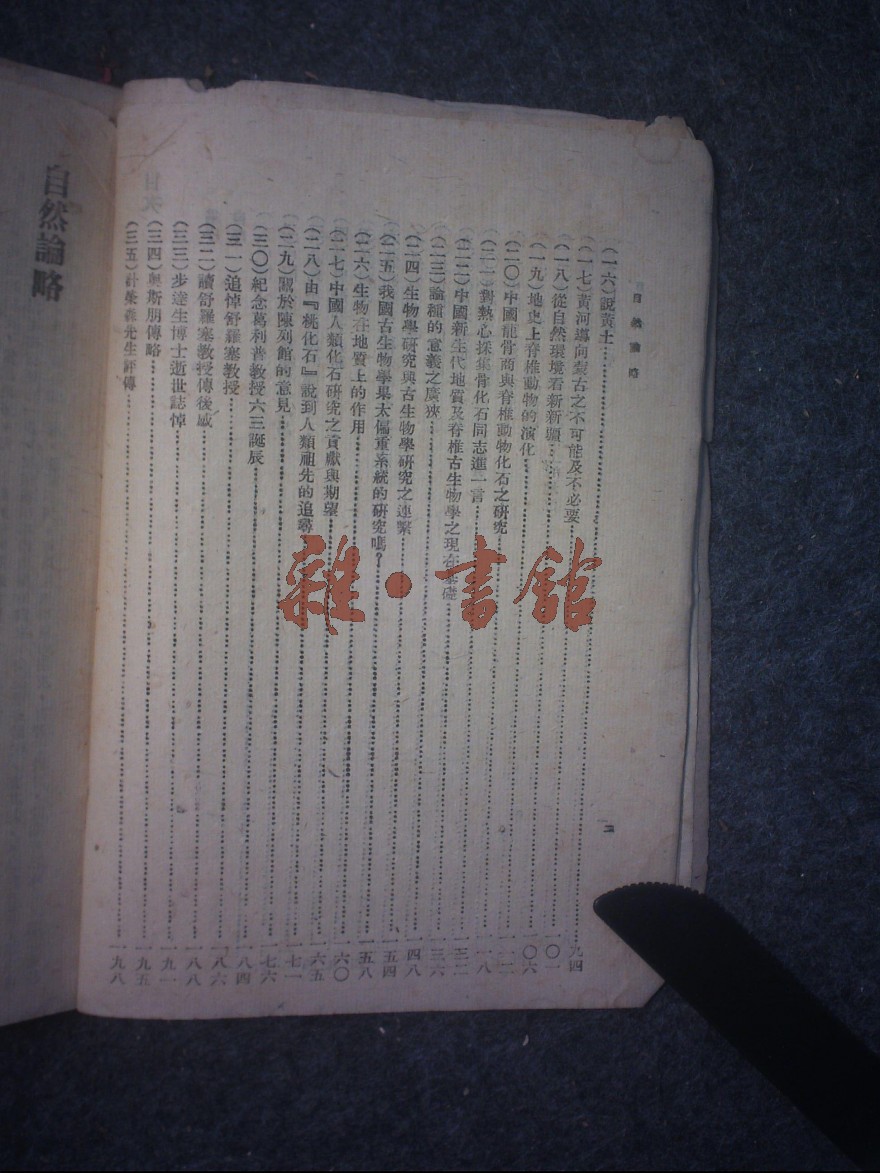 自然論略
二
(一六)說黃土……九四
(一七)黃河導向蒙古之不可能及不必要……一〇一
(一八)從自然環境看新新疆……一〇六
(一九)地史上脊椎動物的演化……一一二
(二〇)中國龍骨商與脊椎動物化石之研究……一一八
(二一)對熱心採集骨化石同志進一言……一三二
(二二)中國新生代地質及脊椎古生物學之現在基礎……一三六
(二三)論種的意義之廣狹……一四八
(二四)生物學研究與古生物學研究之連繫……一五四
(二五)我國古生物學果太偏重系統的研究嗎?……一五八
(二六)生物在地質上的作用……一六〇
(二七)中國人類化石研究之貢獻與期望……一六五
(二八)由『桃化石』說到人類祖先的追尋……一七一
(二九)關於陳列館的意見……一七六
(三〇)紀念葛利普教授六三誕辰……一八四
(三一)追悼舒羅塞教授……一八六
(三二)讀舒羅塞教授傳後感……一八八
(三三)步達生博士逝世誌悼……一九一
(三四)奧斯朋傳略……一九五
(三五)計榮森先生評傳……一九八
自然論略
雜·書館